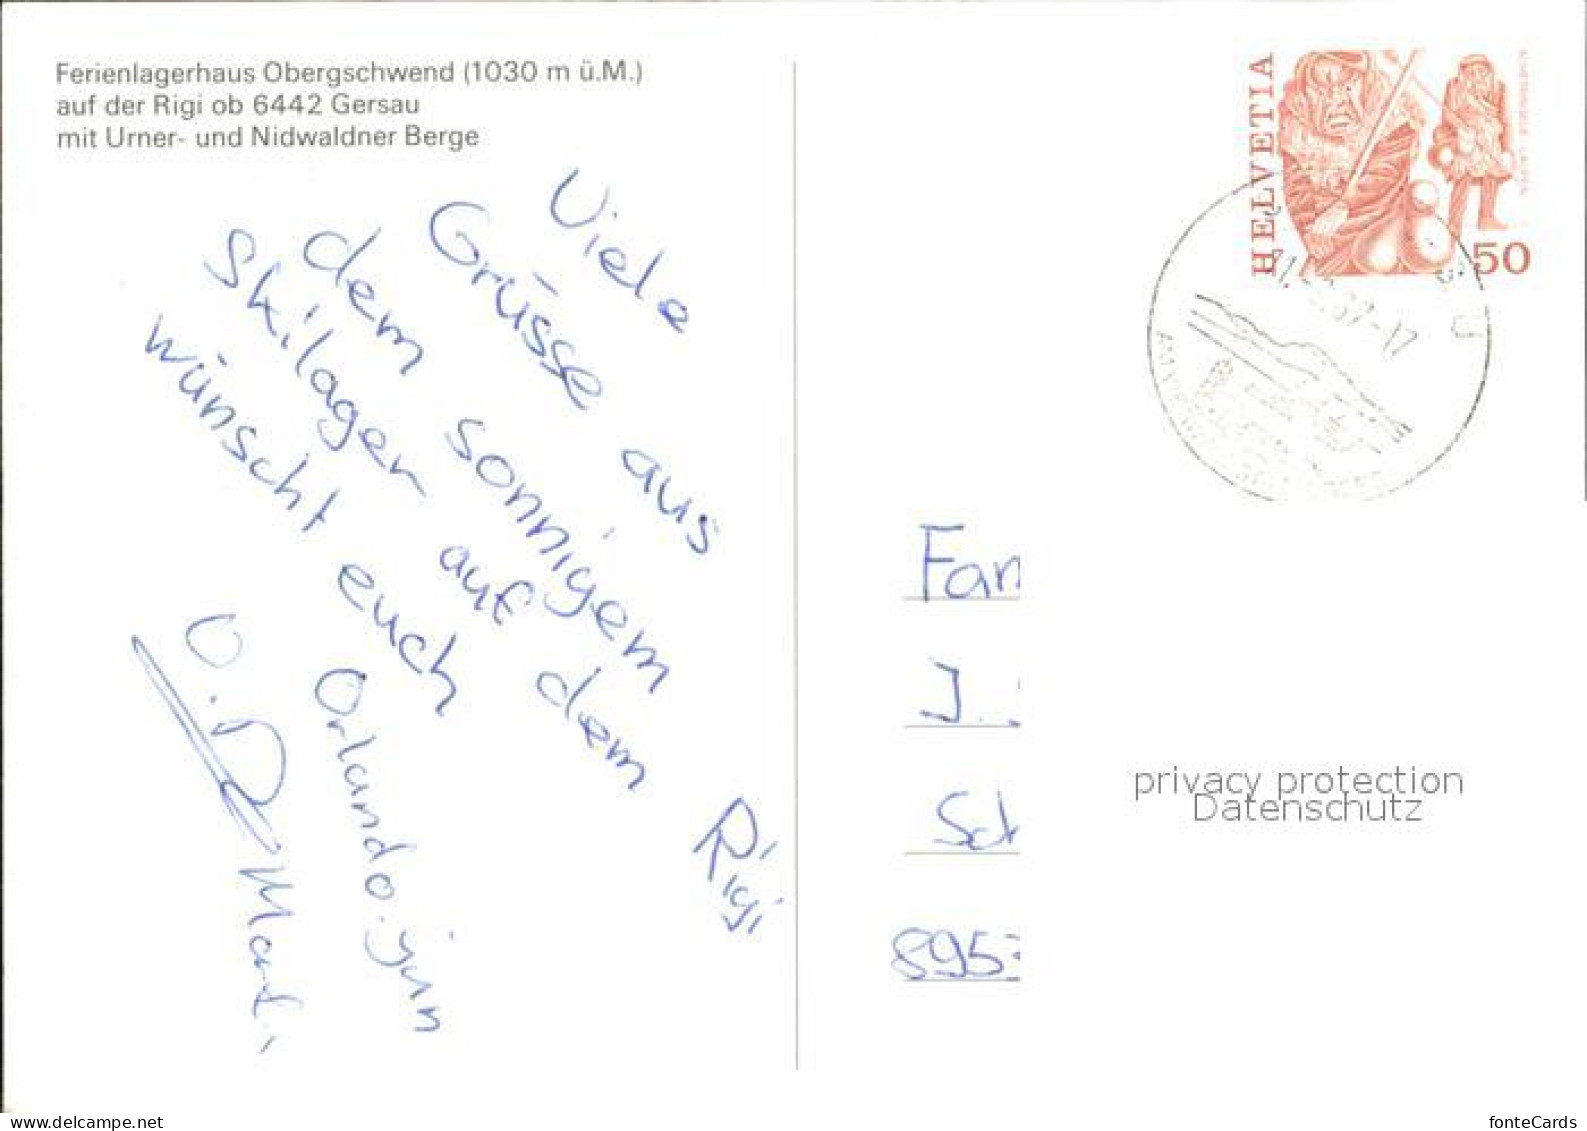 Ferienlagerhaus Obergschwend (1030 m ü.M.)
auf der Rigi ob 6442 Gersau
mit Urner- und Nidwaldner Berge
Viele
Grüsse aus
dem sonnigem
Skilager auf dem Rigi
wünscht euch
Orlando. jun
HELVETIA
50
Fam
J.
Sch
8953
privacy protection
Datenschutz
www.delcampe.net
fonteCards